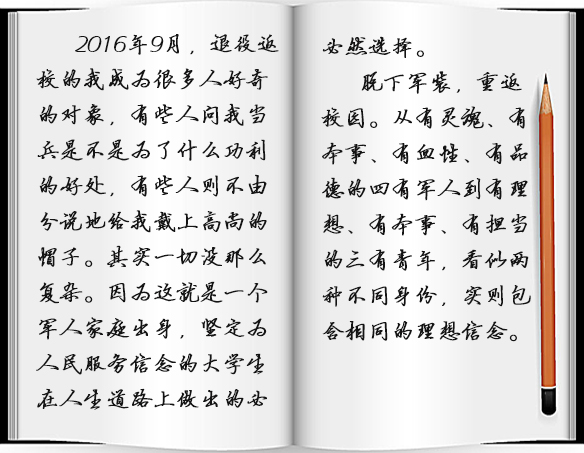 2016年9月，退役返
校的我成为很多人好奇
的对象，有些人问我当
兵是不是为了什么功利
的好处，有些人则不由
分说地给我戴上高尚的
帽子。其实一切没那么
复杂。因为这就是一个
军人家庭出身，坚定为
人民服务信念的大学生
在人生道路上做出的必
必然选择。
脱下军装，重返
校园。从有灵魂、有
本事、有血性、有品
德的四有军人到有理
想、有本事、有担当
的三有青年，看似两
种不同身份，实则包
含相同的理想信念。